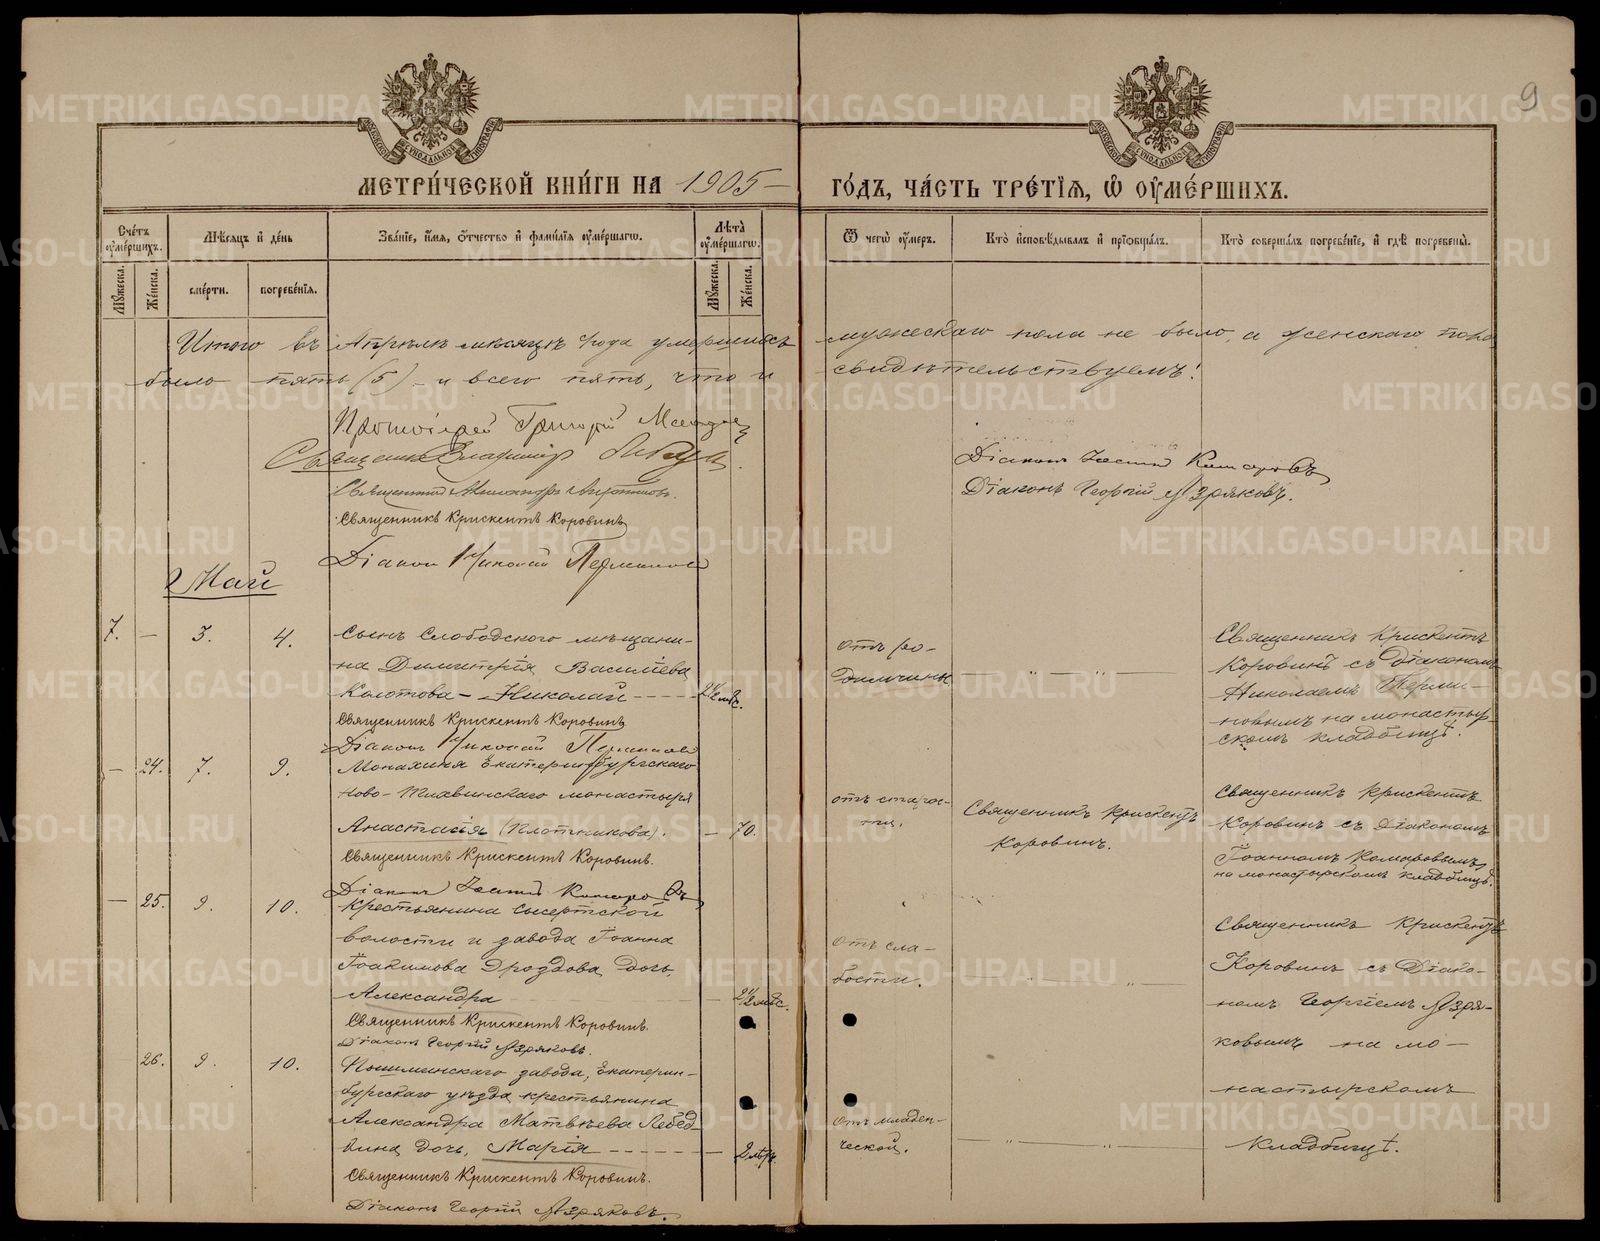 9
МЕТРИ́ЧЕСКОЙ КНИ́ГИ НА 1905 ГО́ДЪ, ЧА́СТЬ ТРЕ́ТІѦ, Ѽ ОУМЕ́РШИХЪ.
Сче́тъ оумершихъ.
Мѣсяцъ и де́нь
Зва́нїе, и́мя, ѻ́тчество и фами́лїя оумершагѡ.
Лѣта̀ оумершагѡ.
Ѿ чегѡ̀ оумеръ.
Кто̀ исповѣдывалъ и прїобща́лъ.
Кто̀ соверша́лъ погребе́нїе, и гдѣ̀ погребены̀.
Мужеска.
Же́нска.
сме́рти.
погребе́нїя.
Мужеска.
Же́нска.
Итого въ Апрѣлѣ мѣсяцѣ года умершихъ мужескаго пола не было, а женскаго пола
было пять (5) – и всего пять, что и свидѣтельствуемъ!
Протоіерей Григорій
Священникъ Владиміръ
Священникъ
Священникъ Крискентъ Коровинъ
Діаконъ Николай Перминовъ
Діаконъ Іоаннъ Комаровъ
Діаконъ Георгій Мзряковъ.
Май
7. — 3. 4.
Сынъ Слободского мѣщани-
на Димитрія Васильева
Колотова – Николай 2½ мѣс.
Священникъ Крискентъ Коровинъ
Діаконъ Николай Перминовъ
отъ ро-
димчика
Священникъ Крискентъ
Коровинъ съ Діакономъ
Николаемъ Перми-
новымъ на монастыр-
скомъ кладбищѣ.
— 24. 7. 9.
Монахиня Екатеринбургскаго
Ново-Тихвинскаго монастыря
Анастасія (Плотникова). — 70.
Священникъ Крискентъ Коровинъ.
Діаконъ Іоаннъ Комаровъ
отъ старос-
ти.
Священникъ Крискентъ
Коровинъ.
Священникъ Крискентъ
Коровинъ съ Діакономъ
Іоанномъ Комаровымъ
на монастырскомъ кладбищѣ.
— 25. 9. 10.
Крестьянина Сысертской
волости и завода Іоанна
Іоакимова Дроздова дочь
Александра — 2½ мѣс.
Священникъ Крискентъ Коровинъ.
Діаконъ Георгій Мзряковъ.
отъ сла-
бости.
Священникъ Крискентъ
Коровинъ съ Діако-
номъ Георгіемъ Мзря-
ковымъ на мо-
настырскомъ
кладбищѣ.
26. 9. 10.
Пышминскаго завода, Екатерин-
бургскаго уѣзда крестьянина
Александра Матвѣева Лебед-
кина дочь, Марія
Священникъ Крискентъ Коровинъ.
Діаконъ Георгій Мзряковъ.
отъ младен-
ческой.
METRIKI.GASO-URAL.RU